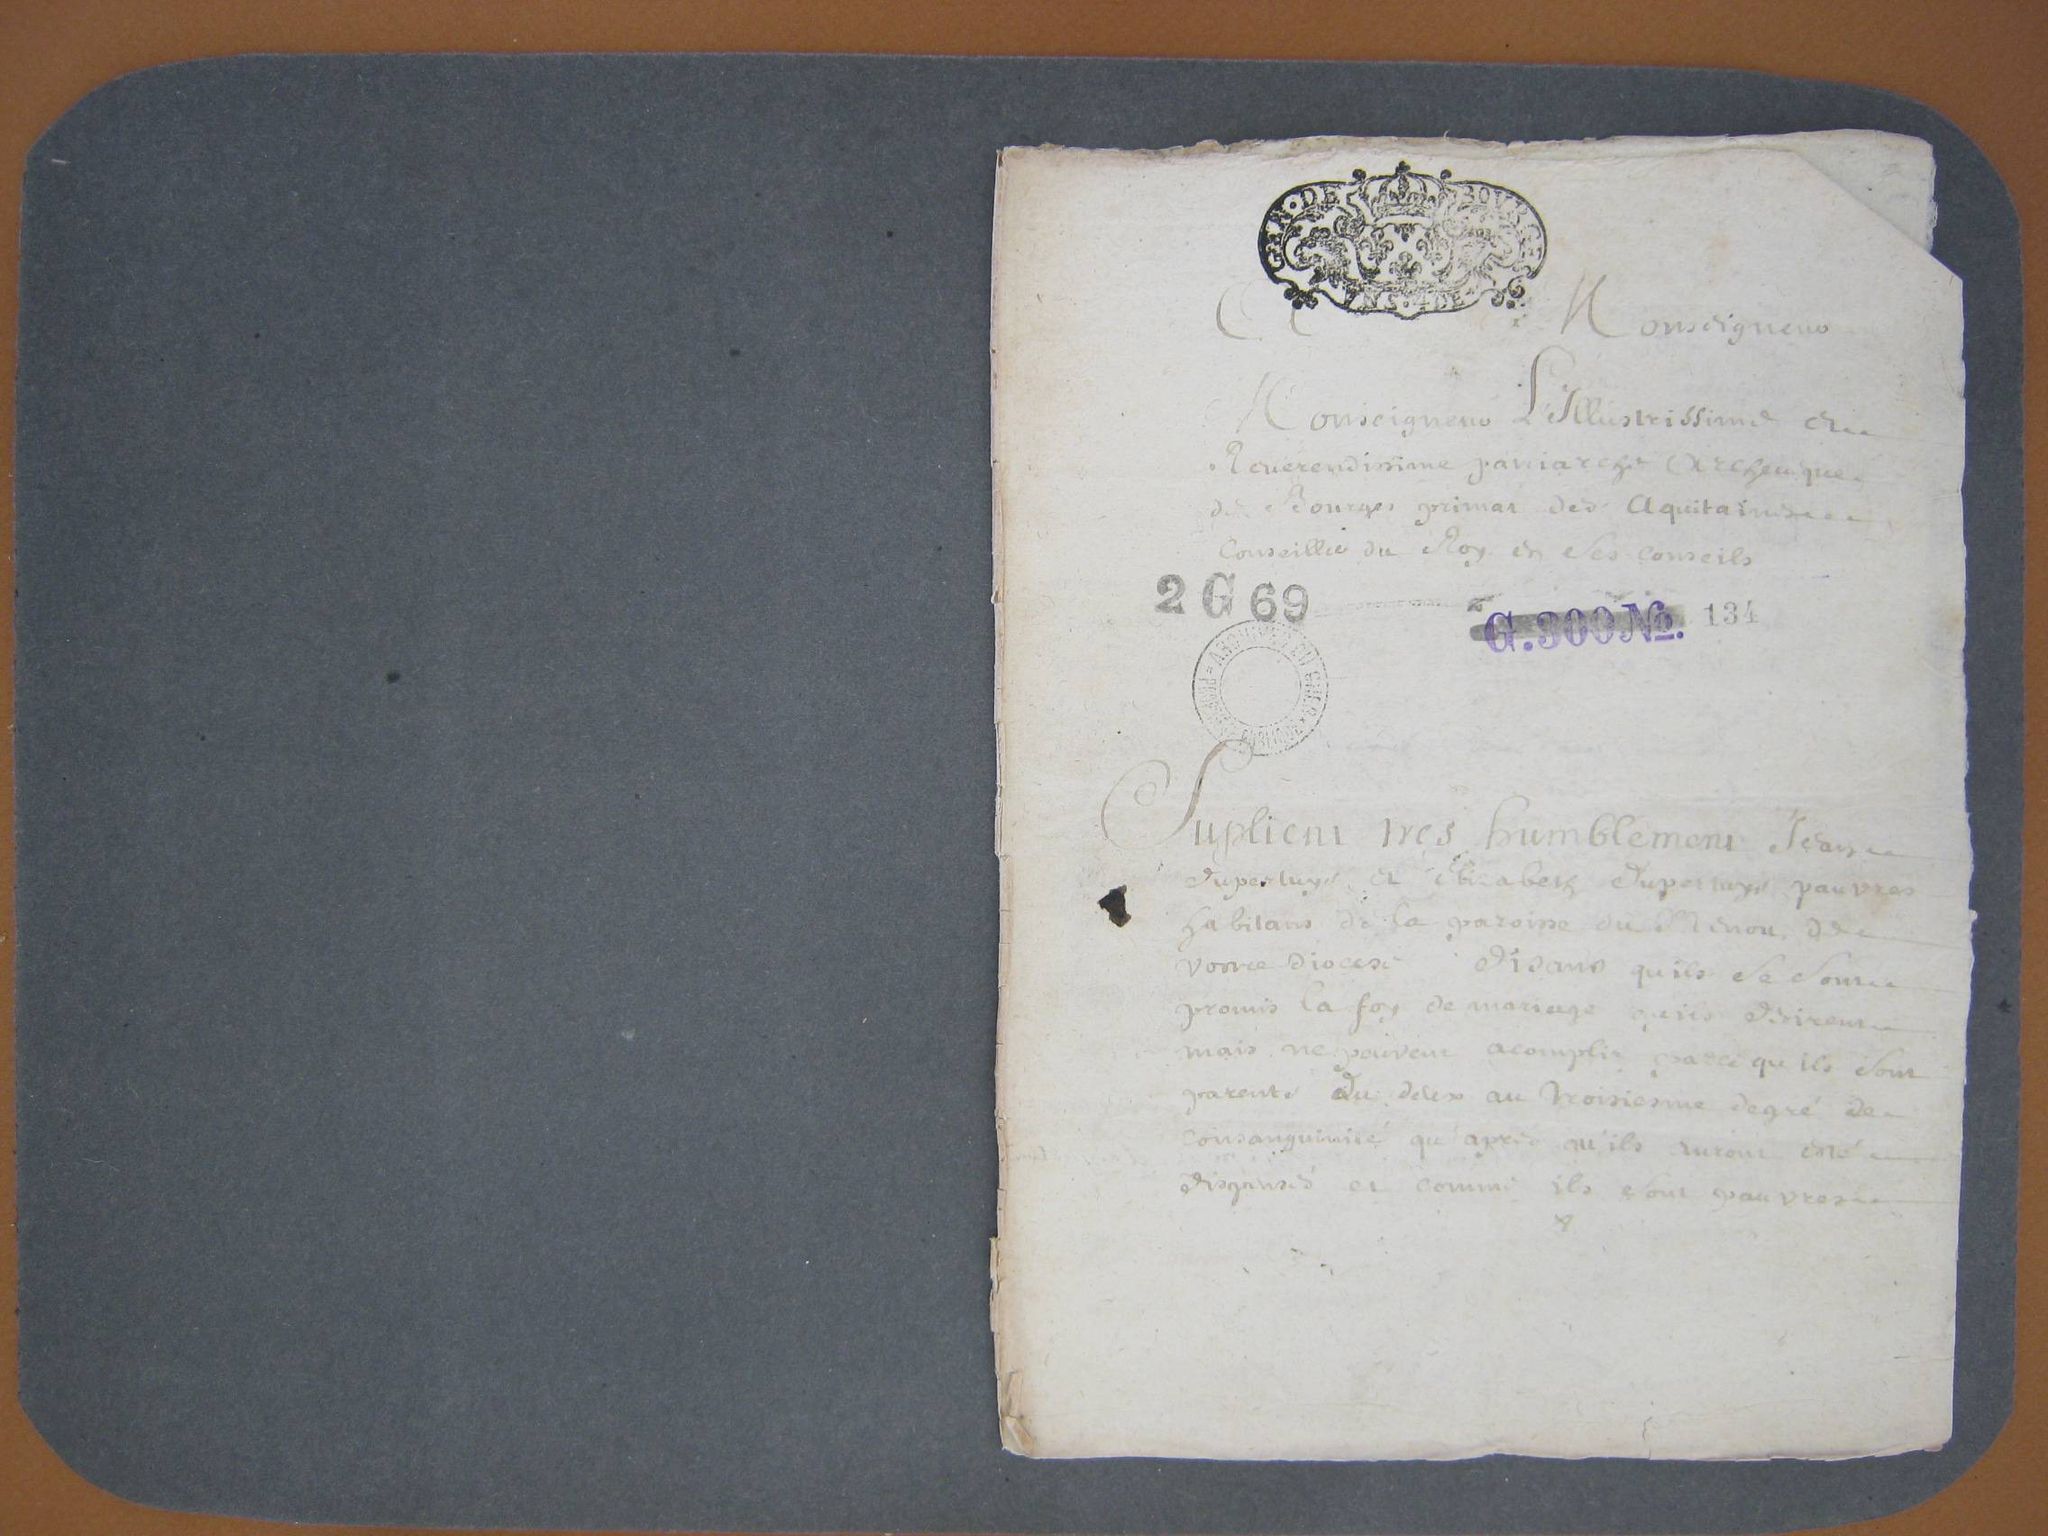 GEN · DE BOURGES
A Monseigneur
Monseigneur L'Illustrissime et
Reuerendissime patriarche Archeuque
de Bourges primat des Aquitaines
Conseiller du Roy en Ses Conseils
2 G 69
G.300 No. 134
ARCHIVES DU CHER
Suplient tres humblement Jean
Dupertuys et Elizabeth Dupertuys pauvres
habitans de la paroisse du de
vostre diocese Disans quils Se Sont
promis la foy de mariage quils desirent
mais ne peuvent acomplir parce qu'ils Sont
parents du deux au troisiesme degré de
Consanguinité qu'après qu'ils auront esté
dispensés et comme ils Sont pauvres